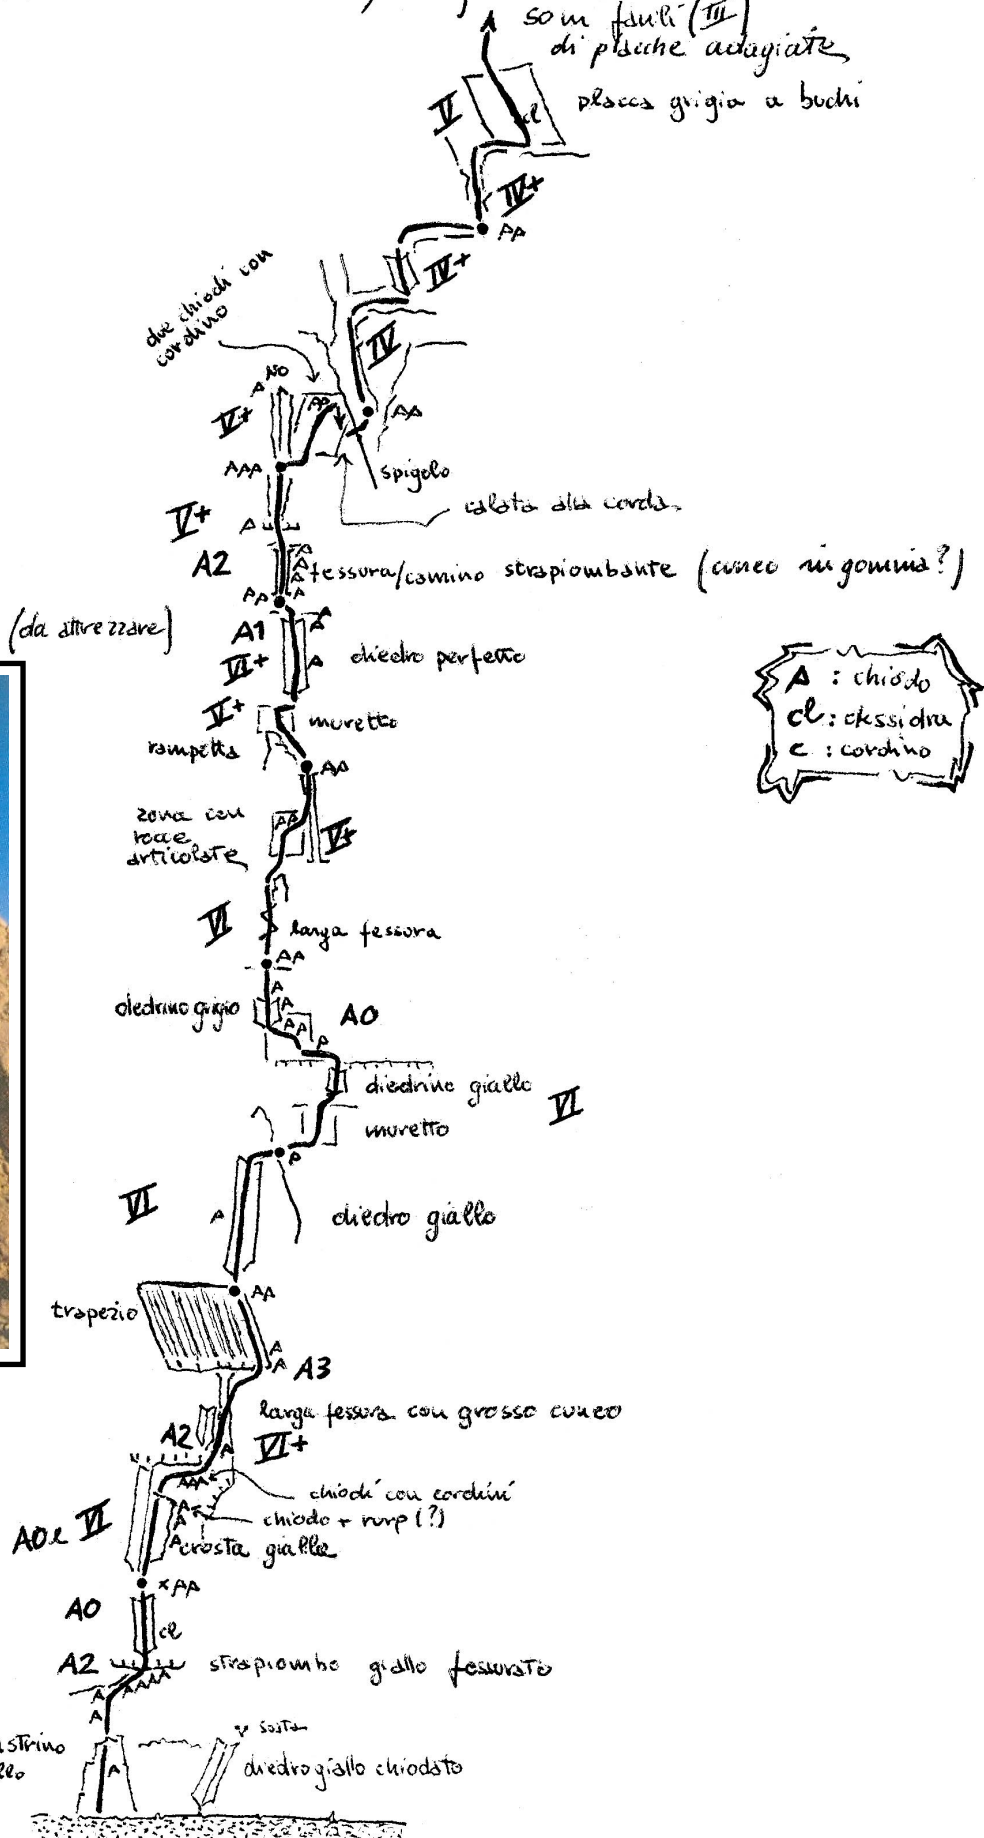 800m facili (III)
di placche adagiate
V
cl
placca grigia a buchi
IV+
AA
IV+
due chiodi con
cordino
IV
NO
A
V+
AA
AA
AAA
spigolo
calata alla corda
V+
A
A2
fessura/camino strapiombante (cuneo in gomma?)
AA
(da attrezzare)
A1
VI+
A
diedro perfetto
A : chiodo
cl : clessidra
c : cordino
V+
muretto
rampetta
AA
zona con
rocce
articolate
AA
V+
VI
larga fessura
AA
A
diedrino grigio
A
AA
A
A0
diedrino giallo
VI
muretto
A
VI
A
diedro giallo
AA
trapezio
A
A
A3
larga fessura con grosso cuneo
A2
VI+
A
AAA
chiodi con cordini
A
chiodo + rurp (?)
A0 e VI
A
A
crosta gialla
x AA
A0
cl
A2
strapiombo giallo fessurato
AAAA
A
A
sosta
A
diedro giallo chiodato